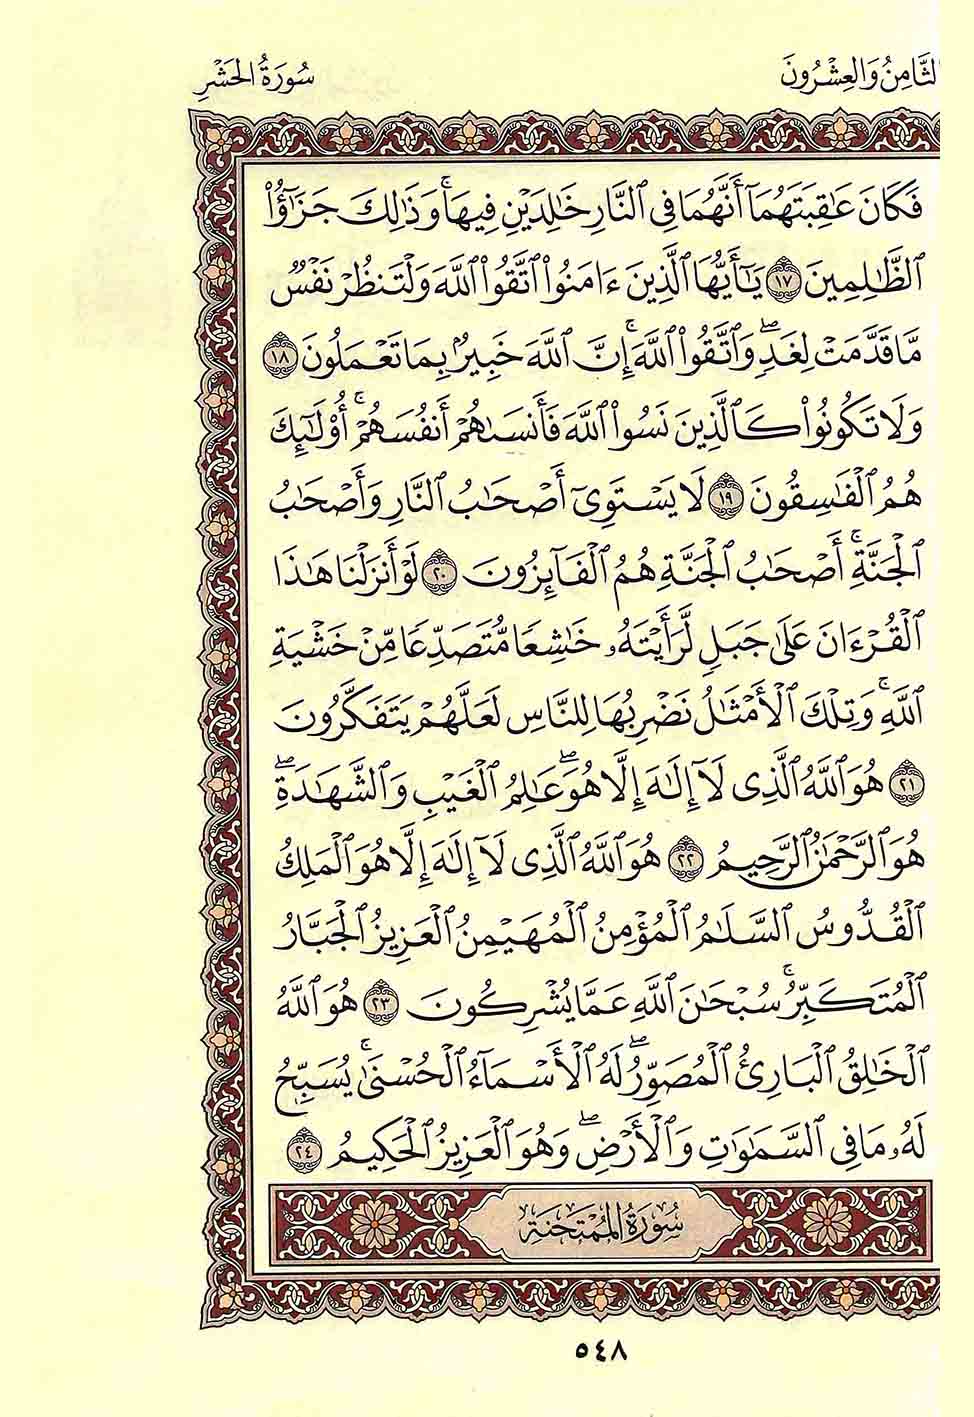 الثَّامِنُ وَالعِشْرُونَ سُورَةُ الحَشْرِ
فَكَانَ عَـٰقِبَتَهُمَآ أَنَّهُمَا فِى ٱلنَّارِ خَـٰلِدَيْنِ فِيهَا ۚ وَذَٰلِكَ جَزَٰٓؤُا۟
ٱلظَّـٰلِمِينَ ١٧ يَـٰٓأَيُّهَا ٱلَّذِينَ ءَامَنُوا۟ ٱتَّقُوا۟ ٱللَّهَ وَلْتَنظُرْ نَفْسٌ
مَّا قَدَّمَتْ لِغَدٍ ۖ وَٱتَّقُوا۟ ٱللَّهَ ۚ إِنَّ ٱللَّهَ خَبِيرٌۢ بِمَا تَعْمَلُونَ ١٨
وَلَا تَكُونُوا۟ كَٱلَّذِينَ نَسُوا۟ ٱللَّهَ فَأَنسَىٰهُمْ أَنفُسَهُمْ ۚ أُو۟لَـٰٓئِكَ
هُمُ ٱلْفَـٰسِقُونَ ١٩ لَا يَسْتَوِىٓ أَصْحَـٰبُ ٱلنَّارِ وَأَصْحَـٰبُ
ٱلْجَنَّةِ ۚ أَصْحَـٰبُ ٱلْجَنَّةِ هُمُ ٱلْفَآئِزُونَ ٢٠ لَوْ أَنزَلْنَا هَـٰذَا
ٱلْقُرْءَانَ عَلَىٰ جَبَلٍ لَّرَأَيْتَهُۥ خَـٰشِعًا مُّتَصَدِّعًا مِّنْ خَشْيَةِ
ٱللَّهِ ۚ وَتِلْكَ ٱلْأَمْثَـٰلُ نَضْرِبُهَا لِلنَّاسِ لَعَلَّهُمْ يَتَفَكَّرُونَ
٢١ هُوَ ٱللَّهُ ٱلَّذِى لَآ إِلَـٰهَ إِلَّا هُوَ ۖ عَـٰلِمُ ٱلْغَيْبِ وَٱلشَّهَـٰدَةِ ۖ
هُوَ ٱلرَّحْمَـٰنُ ٱلرَّحِيمُ ٢٢ هُوَ ٱللَّهُ ٱلَّذِى لَآ إِلَـٰهَ إِلَّا هُوَ ٱلْمَلِكُ
ٱلْقُدُّوسُ ٱلسَّلَـٰمُ ٱلْمُؤْمِنُ ٱلْمُهَيْمِنُ ٱلْعَزِيزُ ٱلْجَبَّارُ
ٱلْمُتَكَبِّرُ ۚ سُبْحَـٰنَ ٱللَّهِ عَمَّا يُشْرِكُونَ ٢٣ هُوَ ٱللَّهُ
ٱلْخَـٰلِقُ ٱلْبَارِئُ ٱلْمُصَوِّرُ ۖ لَهُ ٱلْأَسْمَآءُ ٱلْحُسْنَىٰ ۚ يُسَبِّحُ
لَهُۥ مَا فِى ٱلسَّمَـٰوَٰتِ وَٱلْأَرْضِ ۖ وَهُوَ ٱلْعَزِيزُ ٱلْحَكِيمُ ٢٤
سُورَةُ المُمْتَحنَةِ
٥٤٨